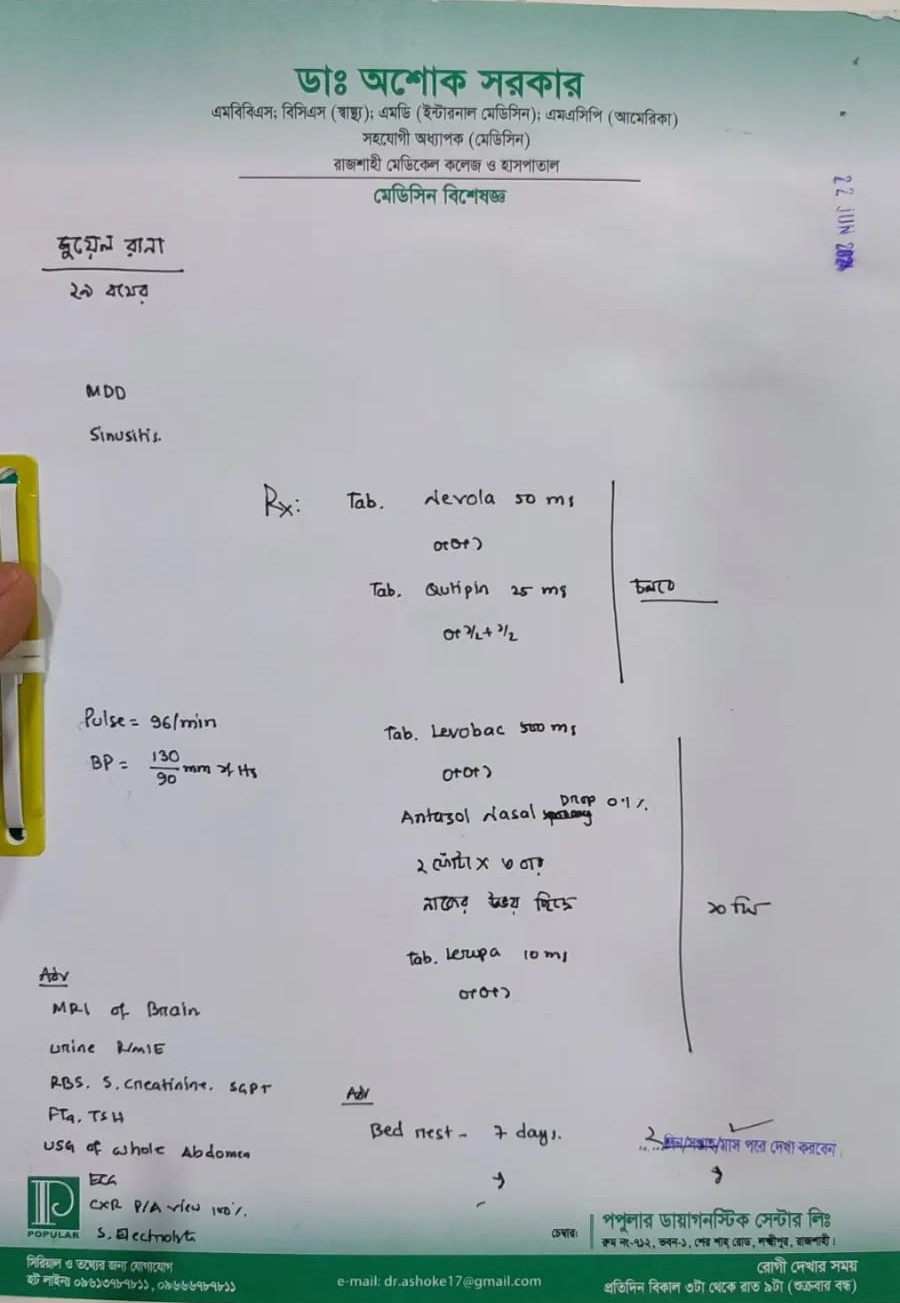 ডাঃ অশোক সরকার
এমবিবিএস; বিসিএস (স্বাস্থ্য); এমডি (ইন্টারনাল মেডিসিন); এমএসিপি (আমেরিকা)
সহযোগী অধ্যাপক (মেডিসিন)
রাজশাহী মেডিকেল কলেজ ও হাসপাতাল
মেডিসিন বিশেষজ্ঞ
22 JUN
জুয়েল রানা
২৯ বৎসর
MDD
Sinusitis.
Rx: Tab. Nevola 50 mg
০+০+১
Tab. Qutipin 25 mg
০+১/২+১/২
চলবে
Pulse = 96/min
BP = 130/90 mm of Hg
Tab. Levobac 500 mg
০+০+১
Antazol Nasal Drop 0.1%
২ ফোঁটা x ৩ বার
নাকের উভয় ছিদ্রে
১০ দিন
Tab. 10 mg
০+০+১
Adv
MRI of Brain
Urine R/M/E
RBS. S. Creatinine. SGPT
FT4, TSH
USG of whole Abdomen
ECG
CXR P/A view
S. Electrolyte
Adv
Bed rest - 7 days.
2 মাস পরে দেখা করবেন
POPULAR
চেম্বার:
পপুলার ডায়াগনস্টিক সেন্টার লিঃ
রুম নং-৭১২, ভবন-১, শের শাহ্ রোড, লক্ষীপুর, রাজশাহী।
সিরিয়াল ও তথ্যের জন্য যোগাযোগ
হট লাইনঃ ০৯৬১৩৭৮৭৮১১, ০৯৬৬৬৭৮৭৮১১
e-mail: dr.ashoke17@gmail.com
রোগী দেখার সময়
প্রতিদিন বিকাল ৩টা থেকে রাত ৯টা (শুক্রবার বন্ধ)